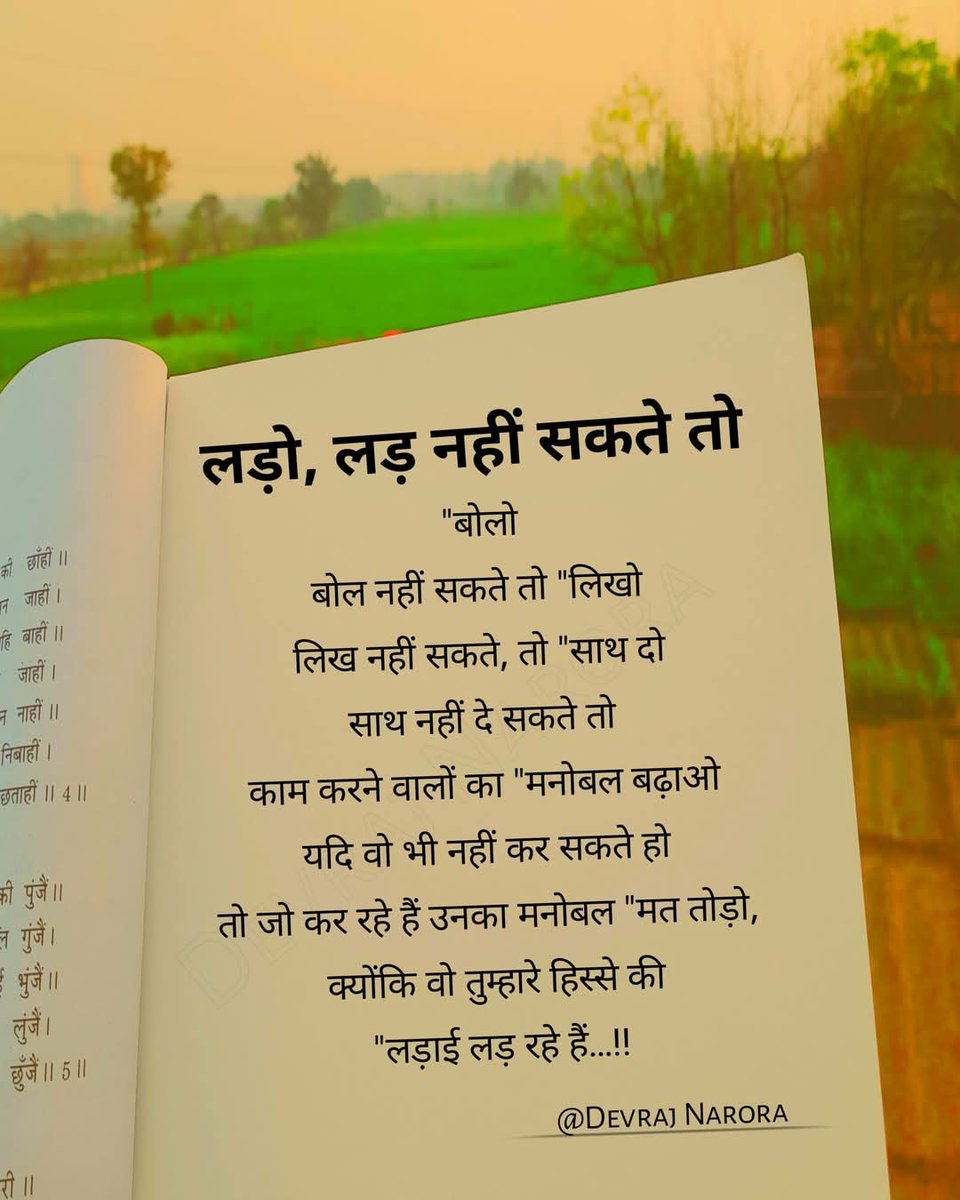 की छाँहीं ॥
जाहीं ।
बाहीं ॥
जाहीं ।
नाहीं ॥
निबाहीं ।
छताहीं ॥ 4 ॥
की पुंजैं ॥
गुंजैं ।
भुंजैं ॥
लुंजैं ।
छुँजैं ॥ 5 ॥
री ॥
लड़ो, लड़ नहीं सकते तो
"बोलो
बोल नहीं सकते तो "लिखो
लिख नहीं सकते, तो "साथ दो
साथ नहीं दे सकते तो
काम करने वालों का "मनोबल बढ़ाओ
यदि वो भी नहीं कर सकते हो
तो जो कर रहे हैं उनका मनोबल "मत तोड़ो,
क्योंकि वो तुम्हारे हिस्से की
"लड़ाई लड़ रहे हैं...!!
@Devraj Narora
DEVRAJ NARORA